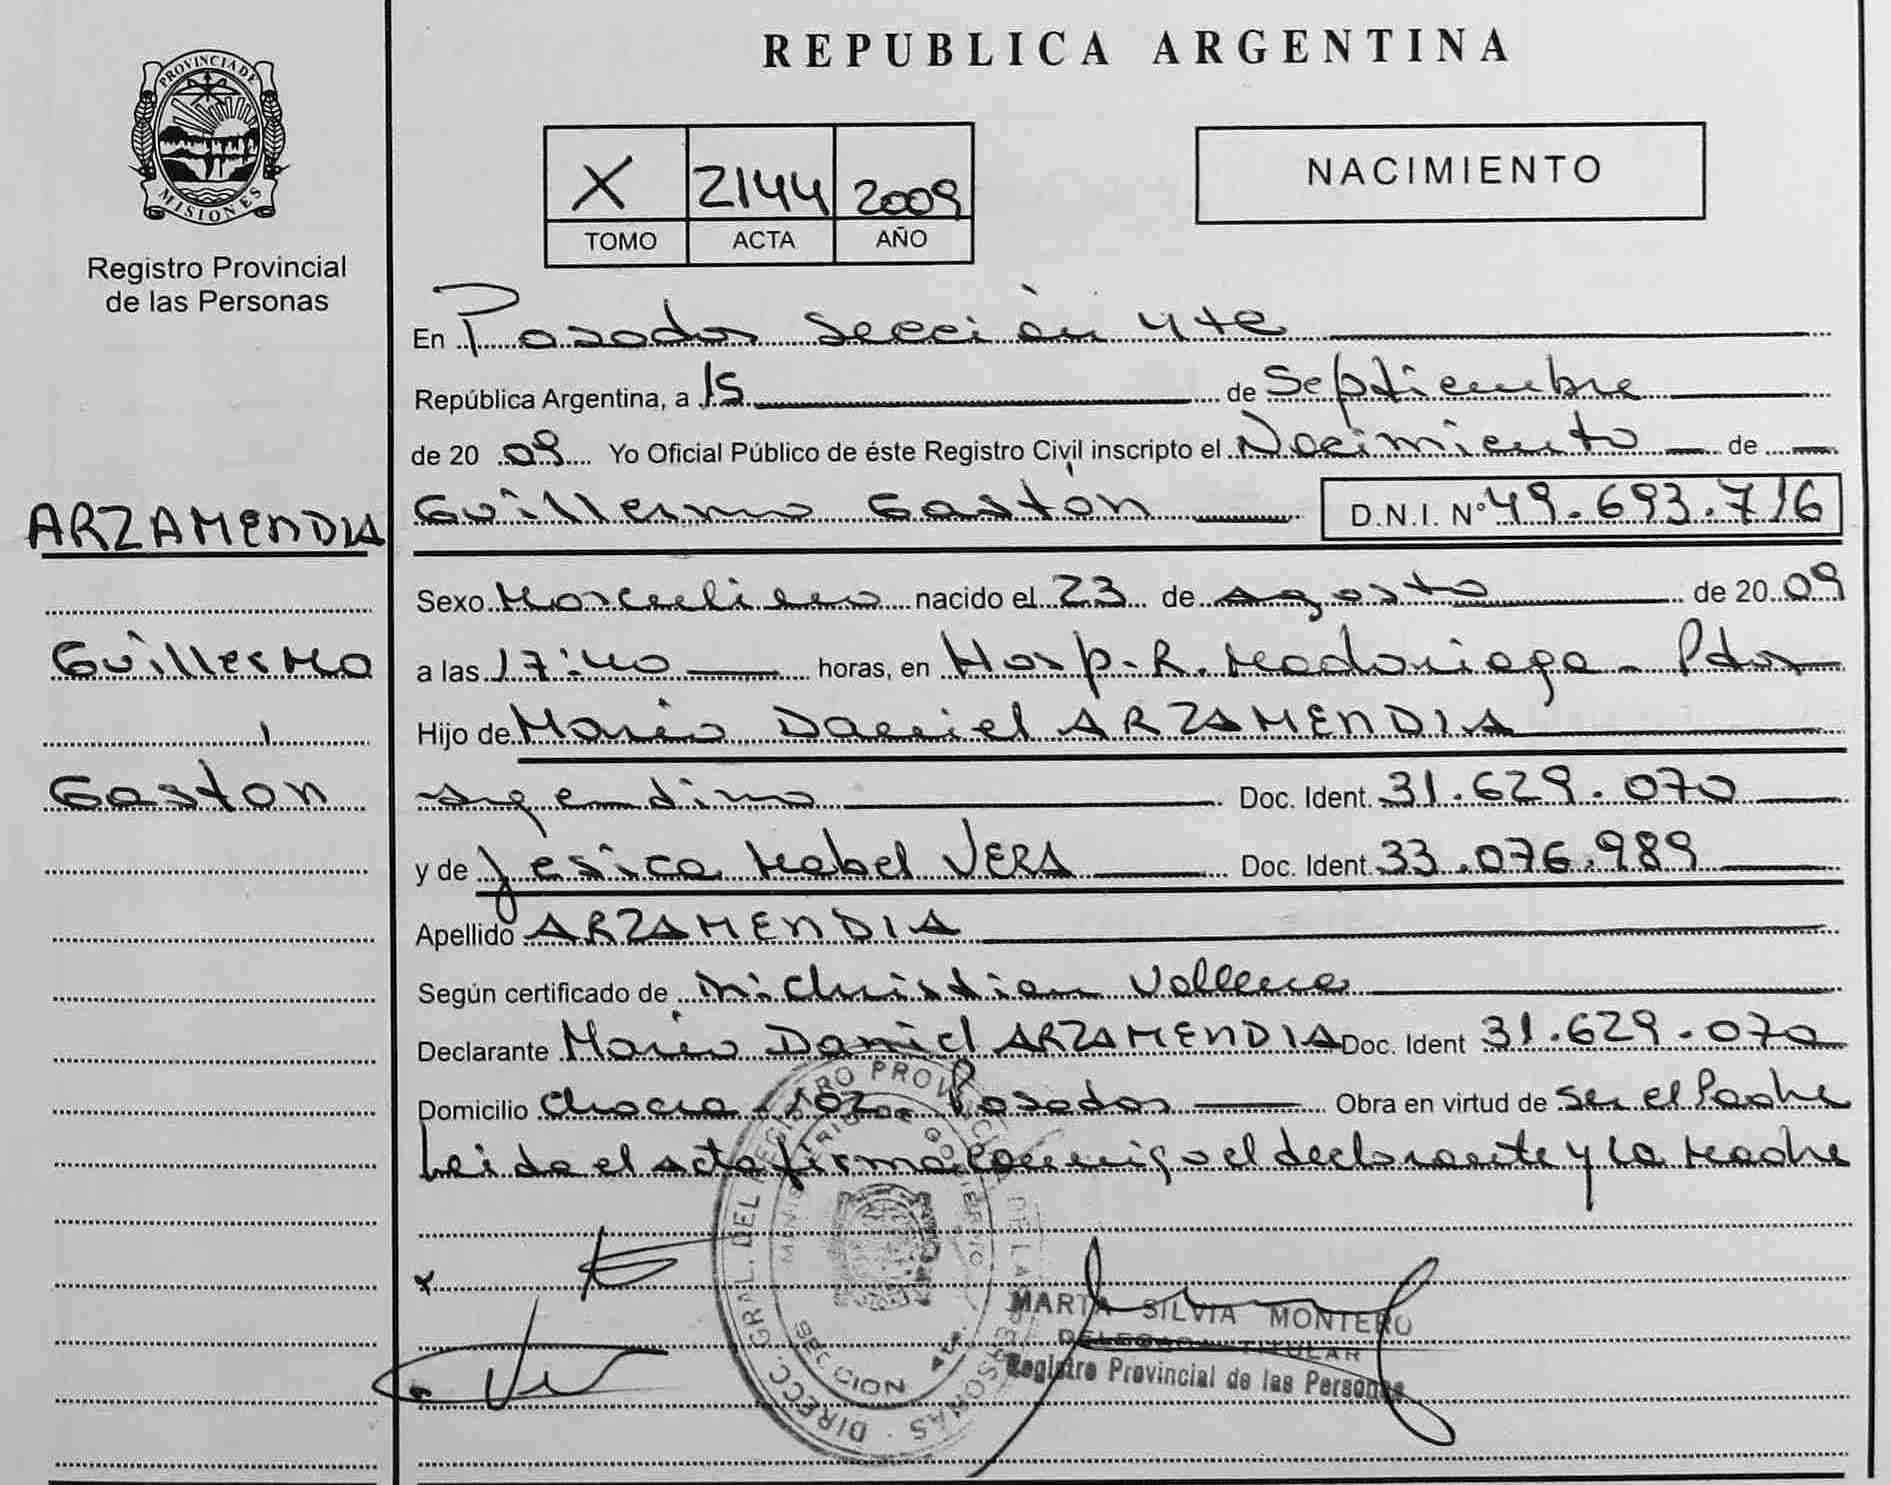 REPUBLICA ARGENTINA
PROVINCIA DE
MISIONES
Registro Provincial
de las Personas
X 2144 2009
TOMO ACTA AÑO
NACIMIENTO
En Posadas Sección 4ta
República Argentina, a 15 de Septiembre
de 20 09 Yo Oficial Público de éste Registro Civil inscripto el Nacimiento de
ARZAMENDIA
Guillermo Gastón D.N.I. Nº 49.693.716
Sexo Masculino nacido el 23 de Agosto de 20 09
Guillermo
a las 17:40 horas, en Hosp. R. Madariaga - Pdas
Hijo de Mario Daniel ARZAMENDIA
Gastón
Argentino Doc. Ident. 31.629.070
y de Jésica Mabel VERA Doc. Ident. 33.076.989
Apellido ARZAMENDIA
Según certificado de Christian
Declarante Mario Daniel ARZAMENDIA Doc. Ident 31.629.070
Domicilio Posadas Obra en virtud de ser el Padre
Leida el acta firma conmigo el declarante y la Madre
DIRECC. GRAL. DEL REGISTRO PROVINCIAL DE LAS PERSONAS
MINISTERIO DE GOBIERNO
SECCION 4ta.
MARTA SILVIA MONTERO
DELEGADA TITULAR
Registro Provincial de las Personas